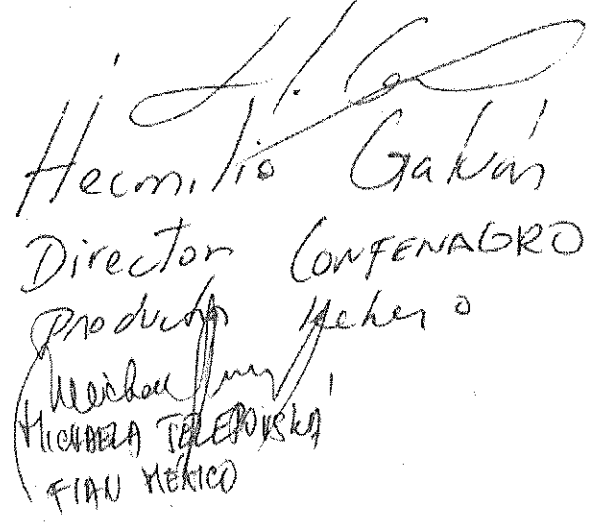 Hermilio Galván
Director CONFENAGRO
Productor lechero
MICHAELA TELEPOVSKÁ
FIAN MÉXICO